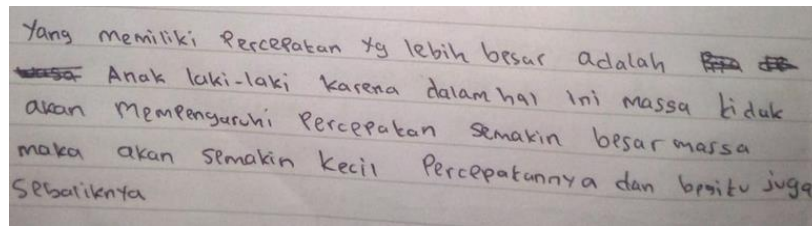 Yang memiliki Percepatan yg lebih besar adalah
Anak laki-laki karena dalam hal ini massa tiduk
akan mempengaruhi Percepatan semakin besar massa
maka akan semakin kecil Percepatannya dan begitu juga
Sebaliknya